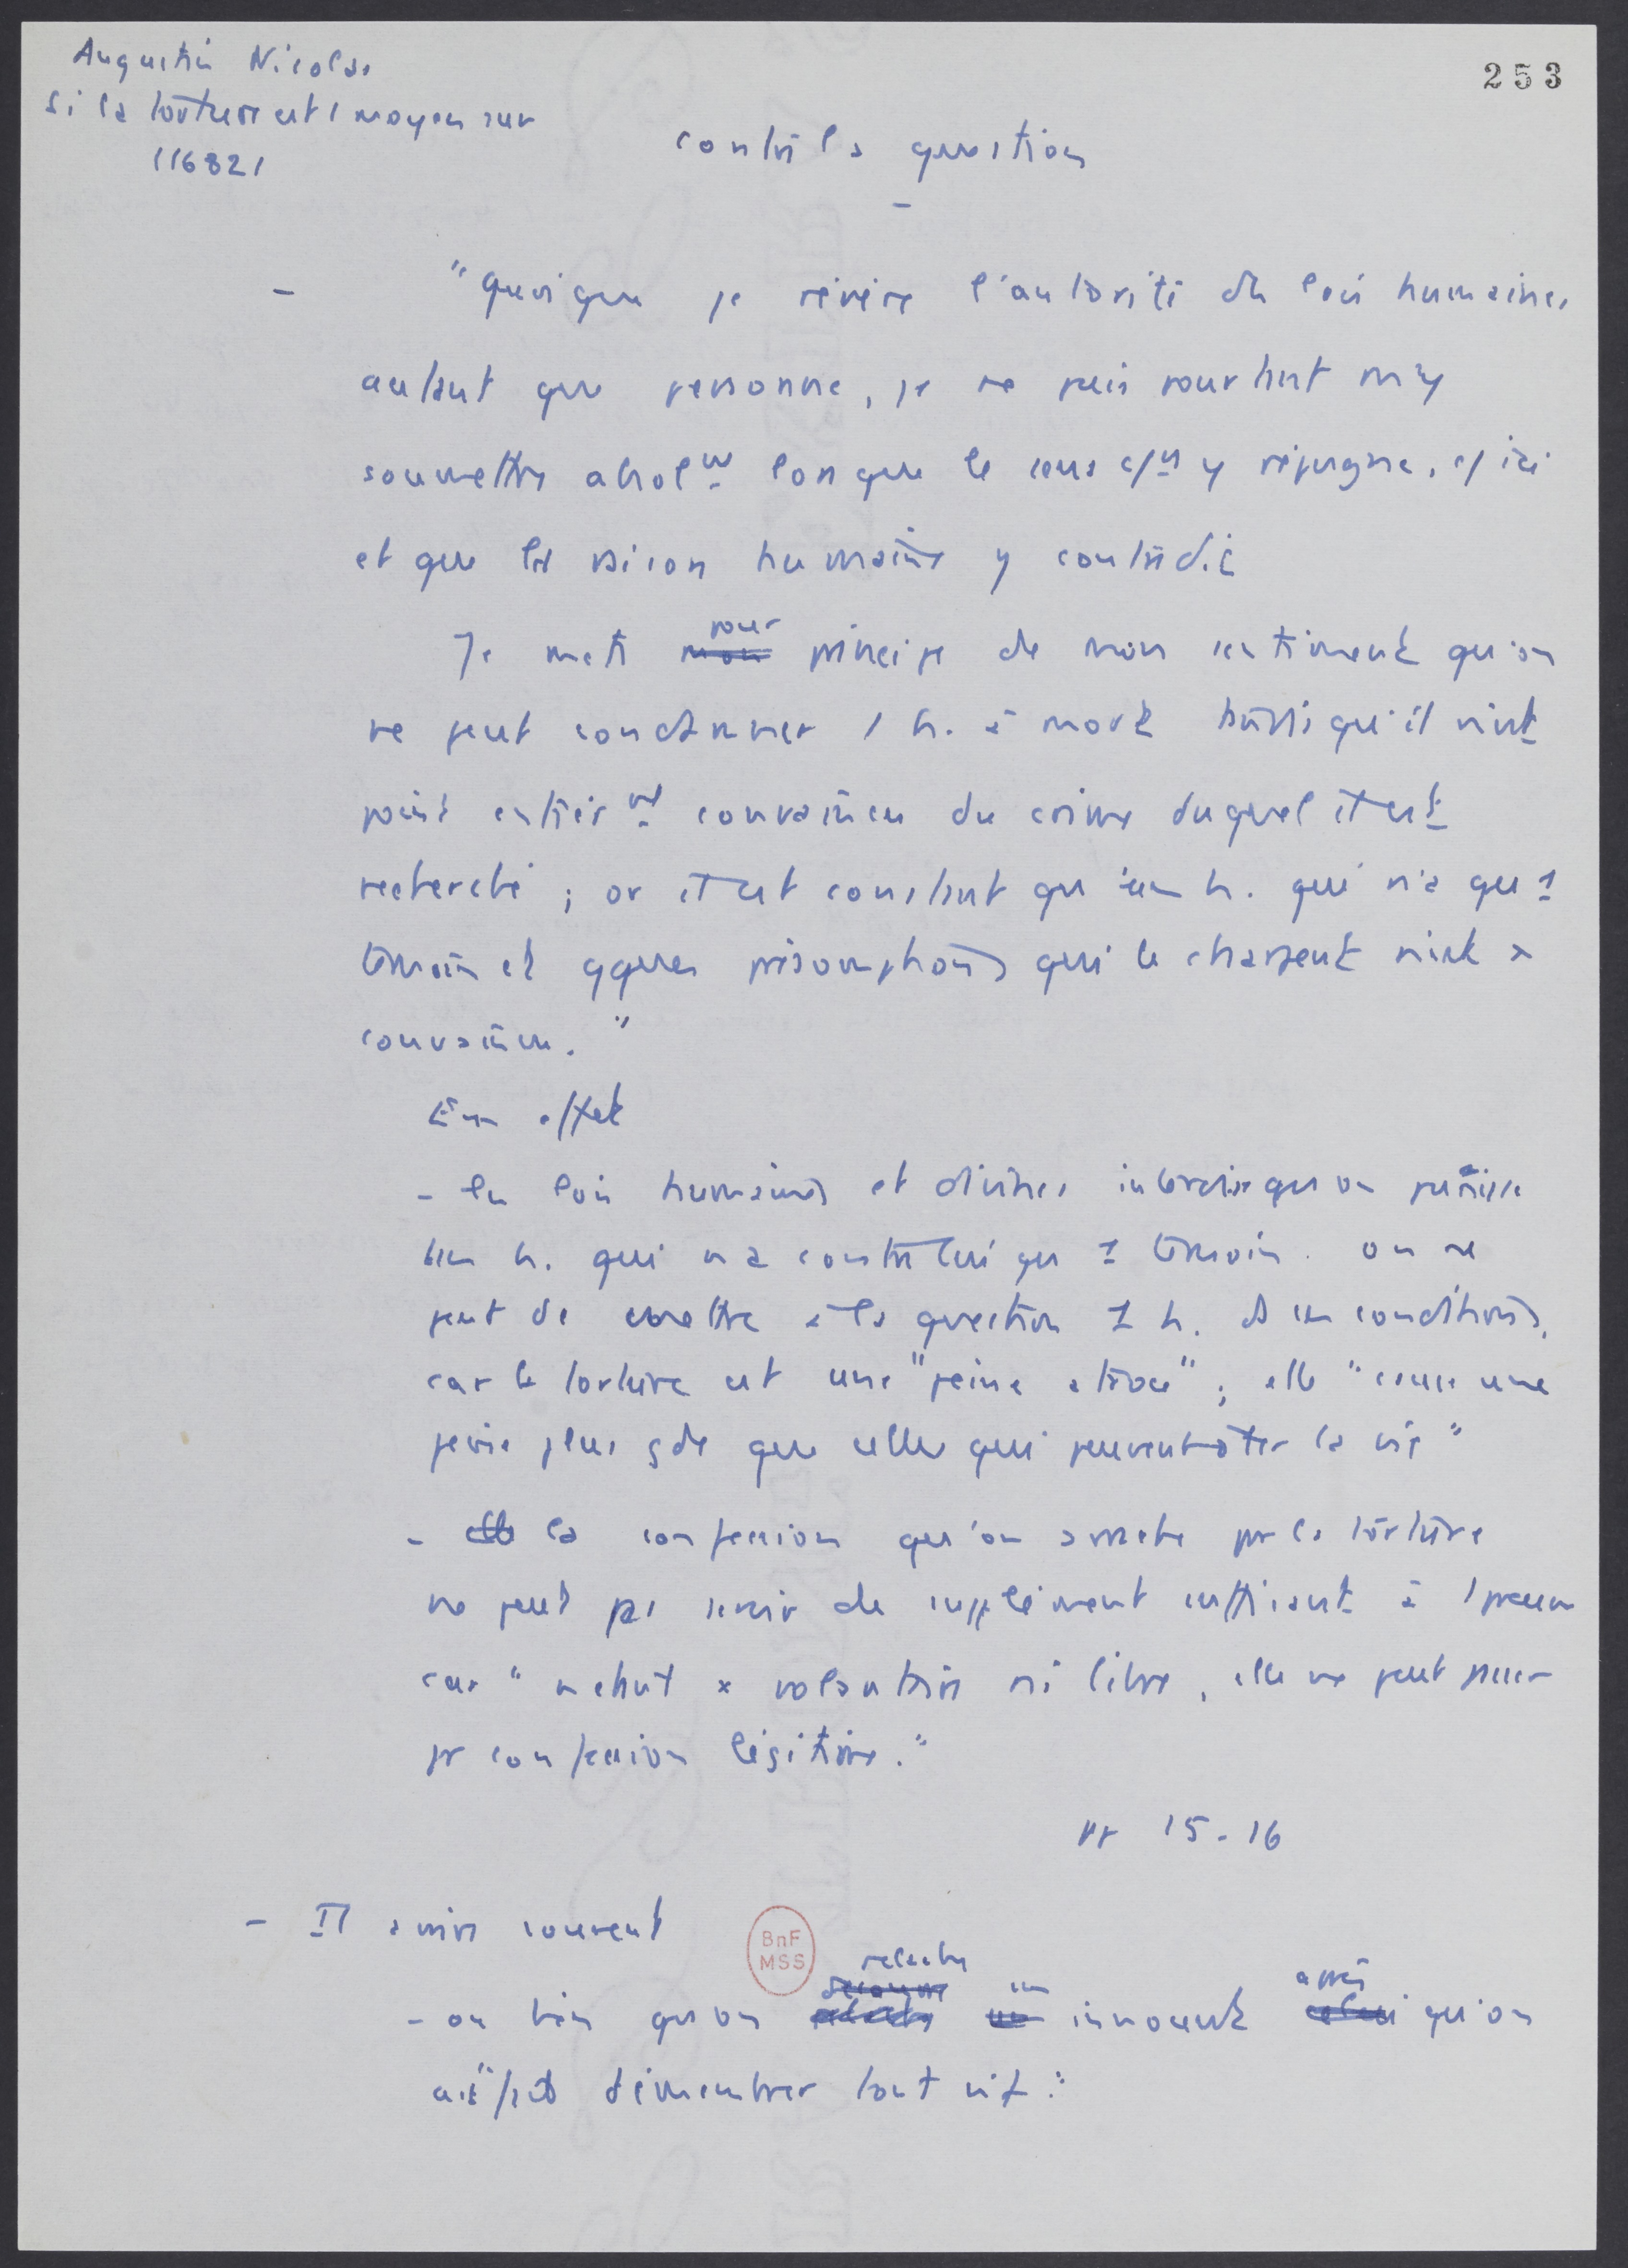 Augustin Nicolas
Si la torture est 1 moyen sur
(1682)
253
contre la question
- "Quoique je révère l'autorité des lois humaines
autant que personne, je ne puis pourtant m'y
soumettre absolᵗ lorsque le sens cⁿ y répugne,
et que la raison humaine y contredit
Je mets mon pour principe de mon sentiment qu'on
ne peut condamner 1 h. à mort tandis qu'il n'est
point entièrᵗ convaincu du crime duquel il est
recherché ; or il est constant qu'un h. qui n'a qu'1
témoin et qques présomptions qui le chargent n'est x
convaincu."
En effet
- les lois humaines et divines interdise qu'on punisse
un h. qui n'a contre lui qu'1 témoin. on ne
peut dc mettre à la question 1 h. ds ces conditions,
car la torture est une "peine atroce" ; elle "cause une
peine plus gde que celles qui peuvent ôter la vie"
- elle la confession qu'on arrache par la torture
ne peut pas servir de supplément suffisant à 1 preuve
car "n'étant x volontaire ni libre, elle ne peut passer
pr confession légitime."
pp 15-16
- Il arrive souvent
BnF
MSS
relache
un
après
- ou bien qu'on innocent qu'on
ait "fait démembrer tout vif."